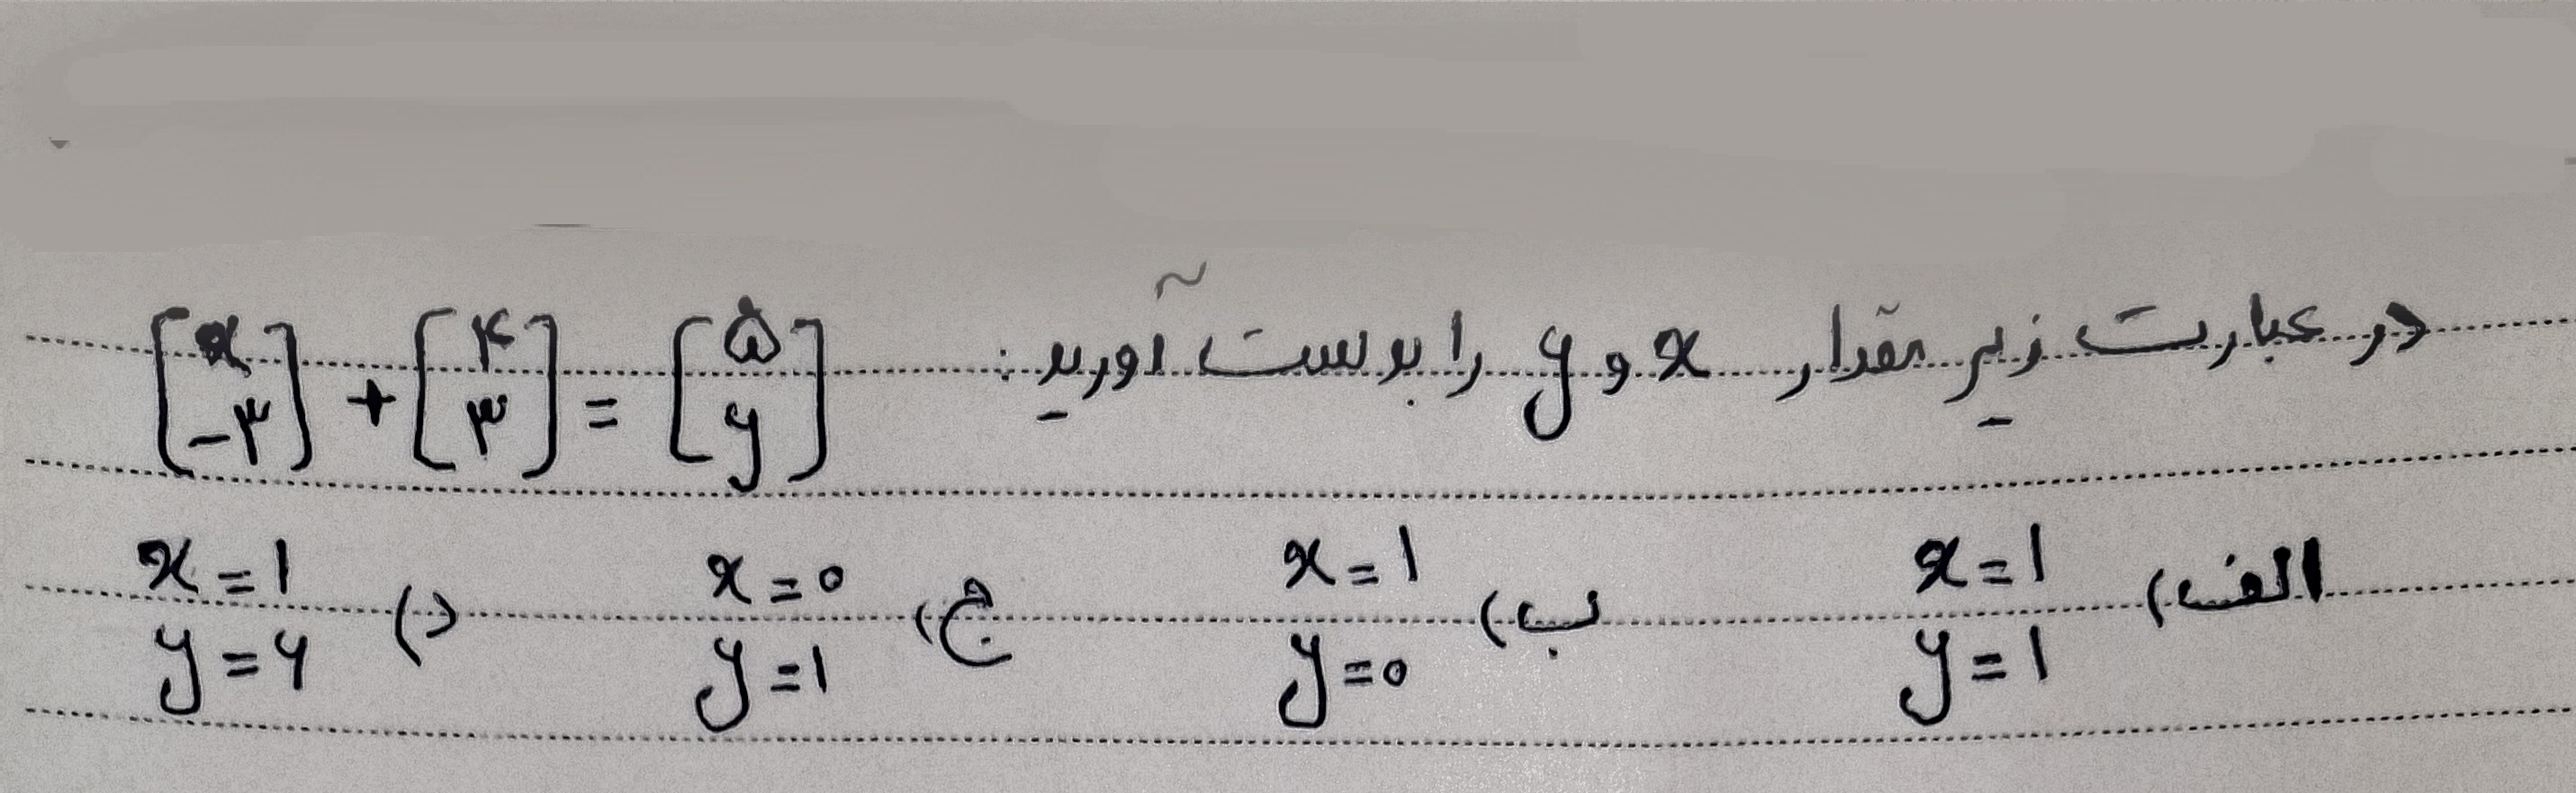 در عبارت زیر مقدار x و y را بدست آورید: [x -۳] + [۴ ۳] = [۵ y]
الف) x=1 y=1 ب) x=1 y=0 ج) x=0 y=1 د) x=1 y=۶